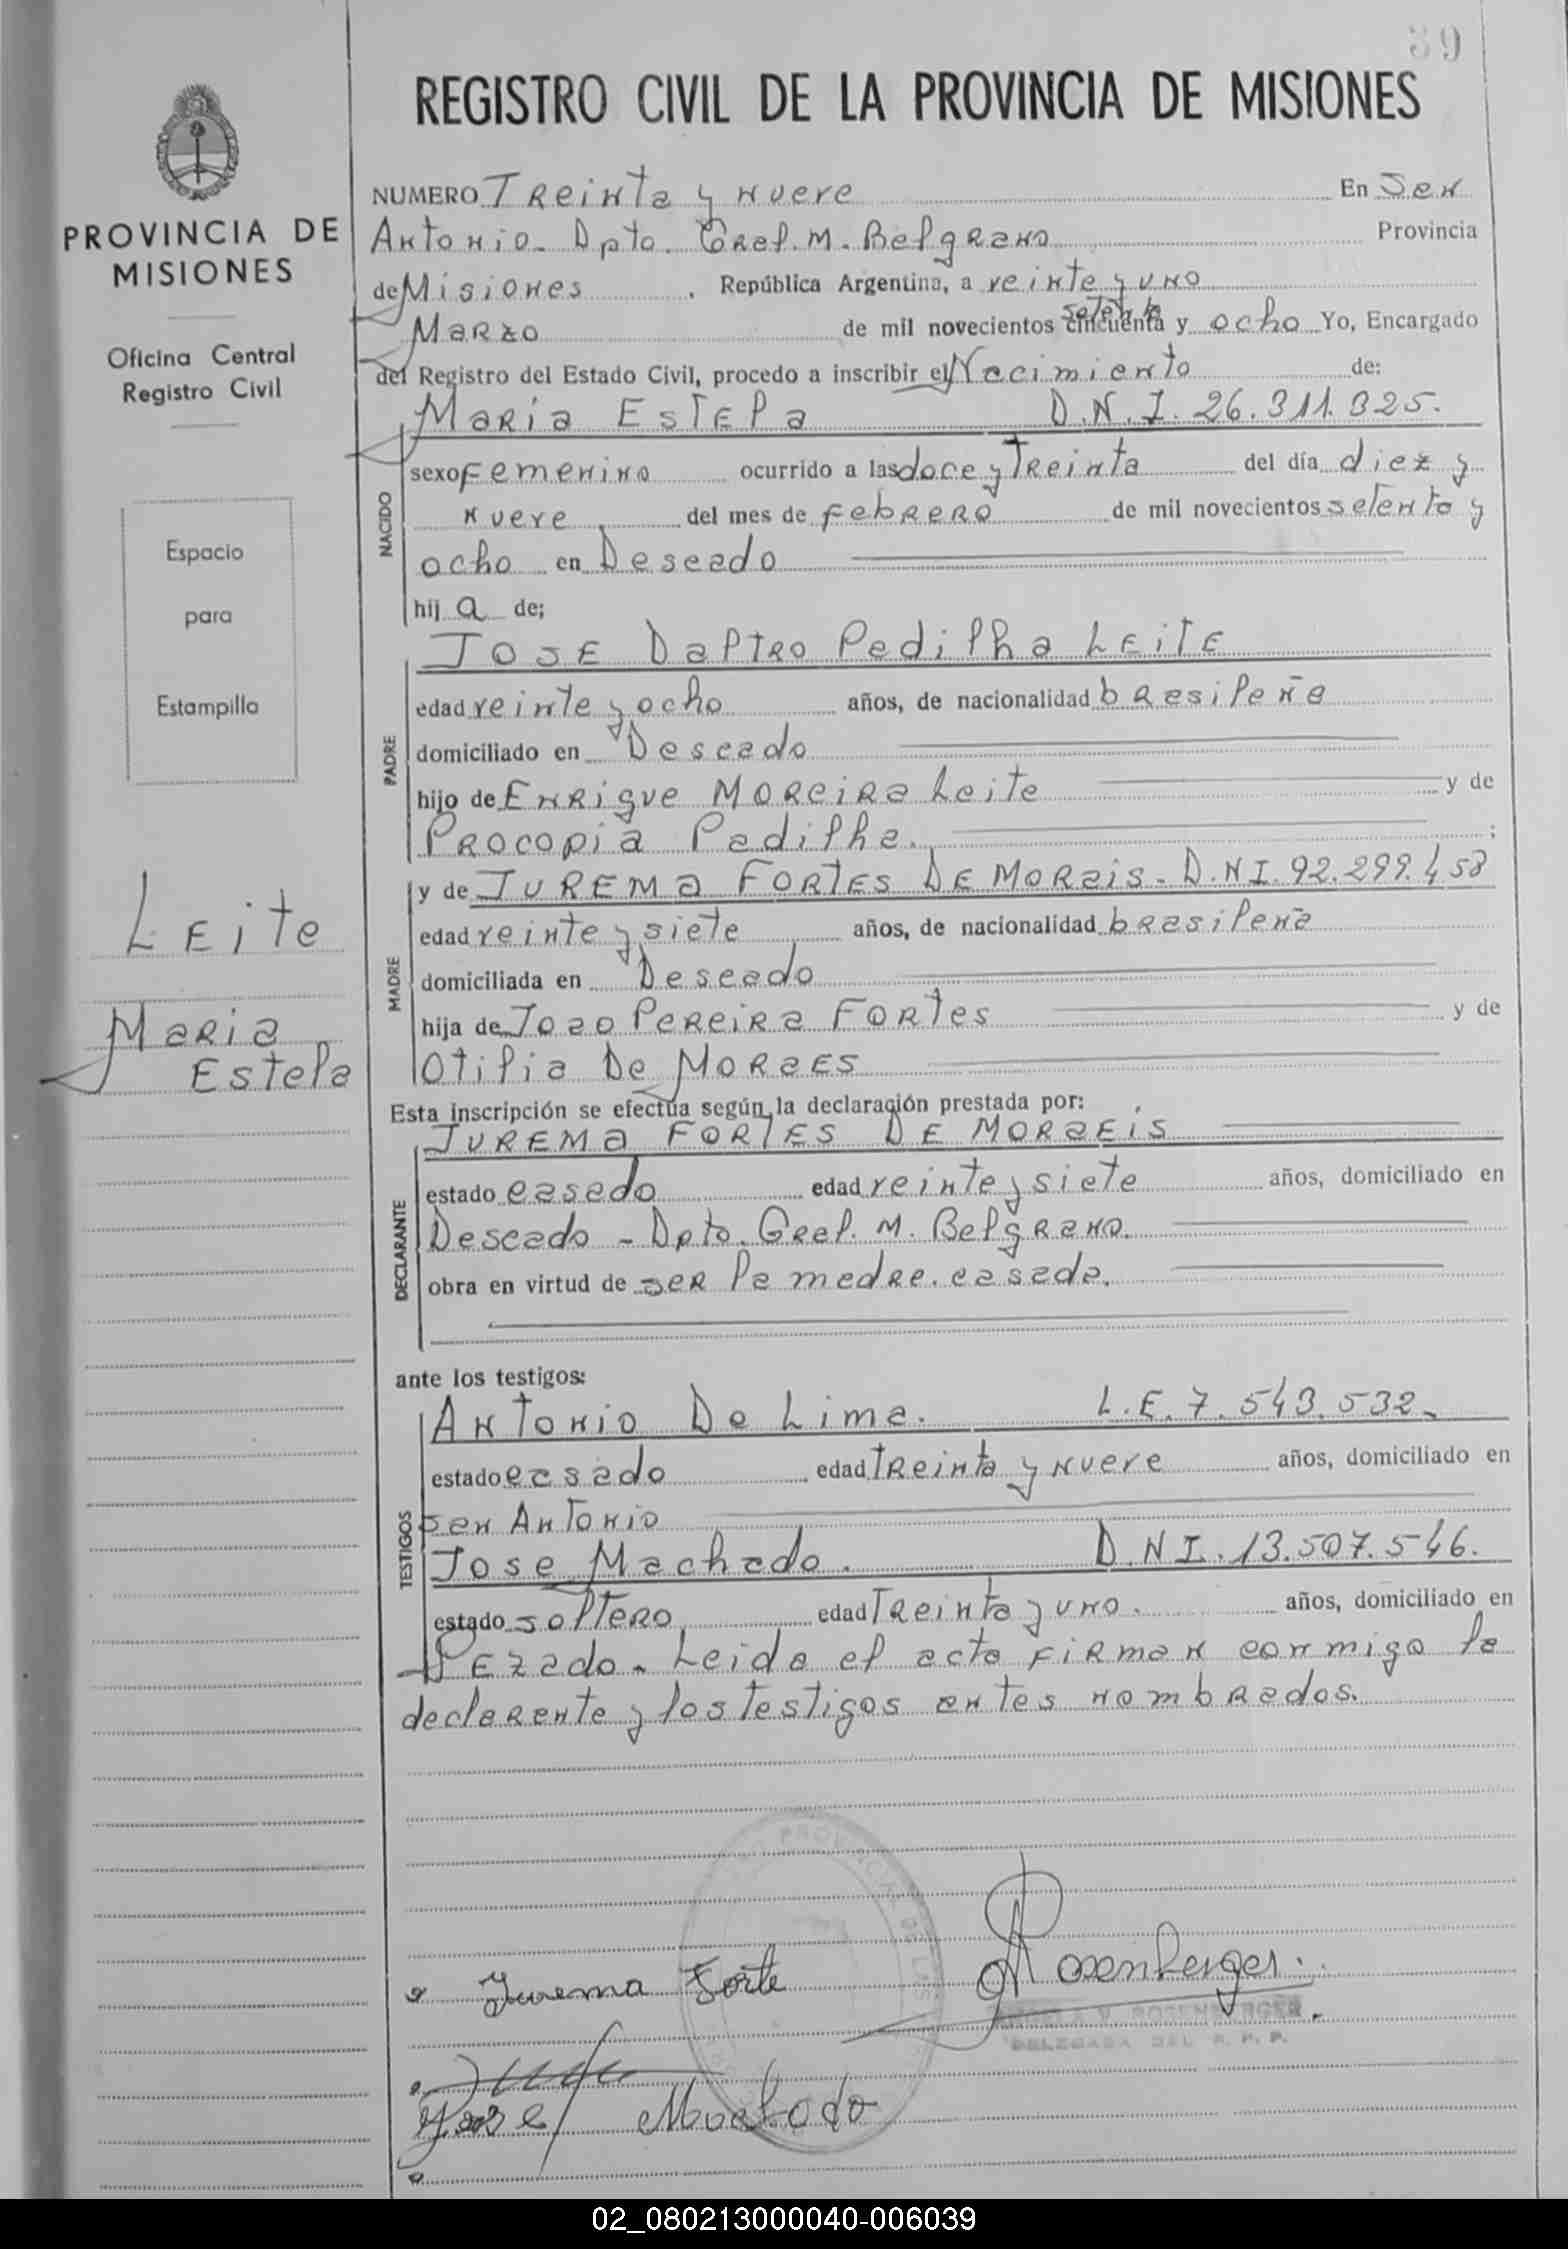 39
REGISTRO CIVIL DE LA PROVINCIA DE MISIONES
PROVINCIA DE
MISIONES
Oficina Central
Registro Civil
Espacio
para
Estampilla
Leite
Maria
Estela
NUMERO Treinta y nueve En San
Antonio - Dpto. Gral. M. Belgrano Provincia
de Misiones, República Argentina, a veinte y uno
Marzo de mil novecientos cincuenta setenta y ocho Yo, Encargado
del Registro del Estado Civil, procedo a inscribir el Nacimiento de:
Maria Estela D.N.I. 26.311.325.
NACIDO
sexo femenino ocurrido a las doce y Treinta del día diez y
nueve, del mes de febrero de mil novecientos setenta y
ocho en Deseado
hija de;
PADRE
Jose Daltro Padilha Leite
edad veinte y ocho años, de nacionalidad brasileña
domiciliado en Deseado
hijo de Enrique Moreira Leite y de
Procopia Padilha. ;
MADRE
y de Jurema Fortes De Morais - D.N.I. 92.299.458
edad veinte y siete años, de nacionalidad brasileña
domiciliada en Deseado
hija de Joao Pereira Fortes y de
Otilia De Moraes
Esta inscripción se efectúa según la declaración prestada por:
DECLARANTE
Jurema Fortes De Moraeis
estado casado edad veinte y siete años, domiciliado en
Deseado - Dpto. Gral. M. Belgrano.
obra en virtud de ser la madre. casada.
ante los testigos:
TESTIGOS
Antonio De Lima. L.E. 7.543.532.
estado casado edad Treinta y nueve años, domiciliado en
San Antonio
Jose Machado. D.N.I. 13.507.546.
estado soltero edad Treinta y uno. años, domiciliado en
Pezado. Leida el acta firman conmigo la
declarante y los testigos antes nombrados.
Jurema Forte
Rosenberger
ROSENBERGER
DELEGADA DEL R. P. P.
Jose Machado
02_080213000040-006039